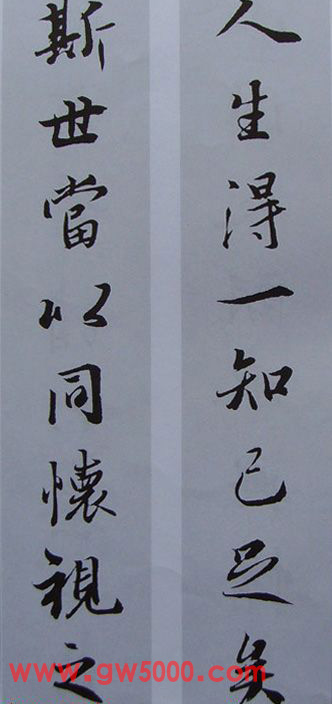 人生得一知己足矣
斯世當以同懷視之
www.gw5000.com